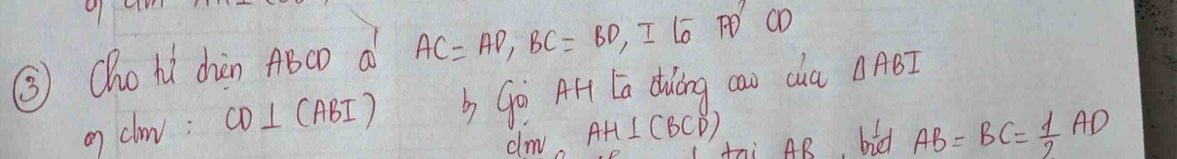 ③ Cho tứ diện ABCD có AC = AD, BC = BD, I là TĐ CD
a) cm : CD ⊥ (ABI)
b) Gọi AH là đường cao của ΔABI
cm AH ⊥ (BCD)
tại AB, biết AB = BC = 1/2 AD